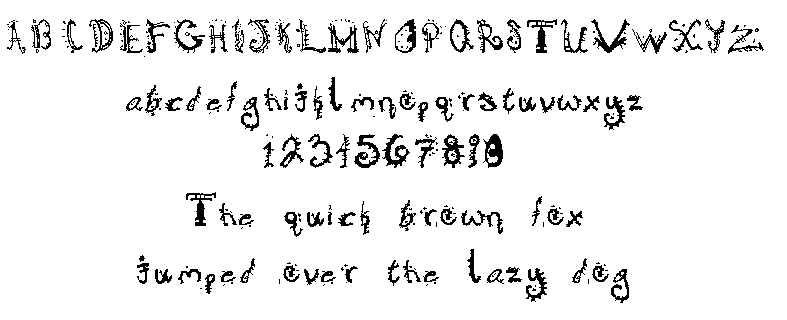 A B C D E F G H I J K L M N O P Q R S T U V W X Y Z
a b c d e f g h i j k l m n o p q r s t u v w x y z
1 2 3 4 5 6 7 8 9 0
The quick brown fox
jumped over the lazy dog